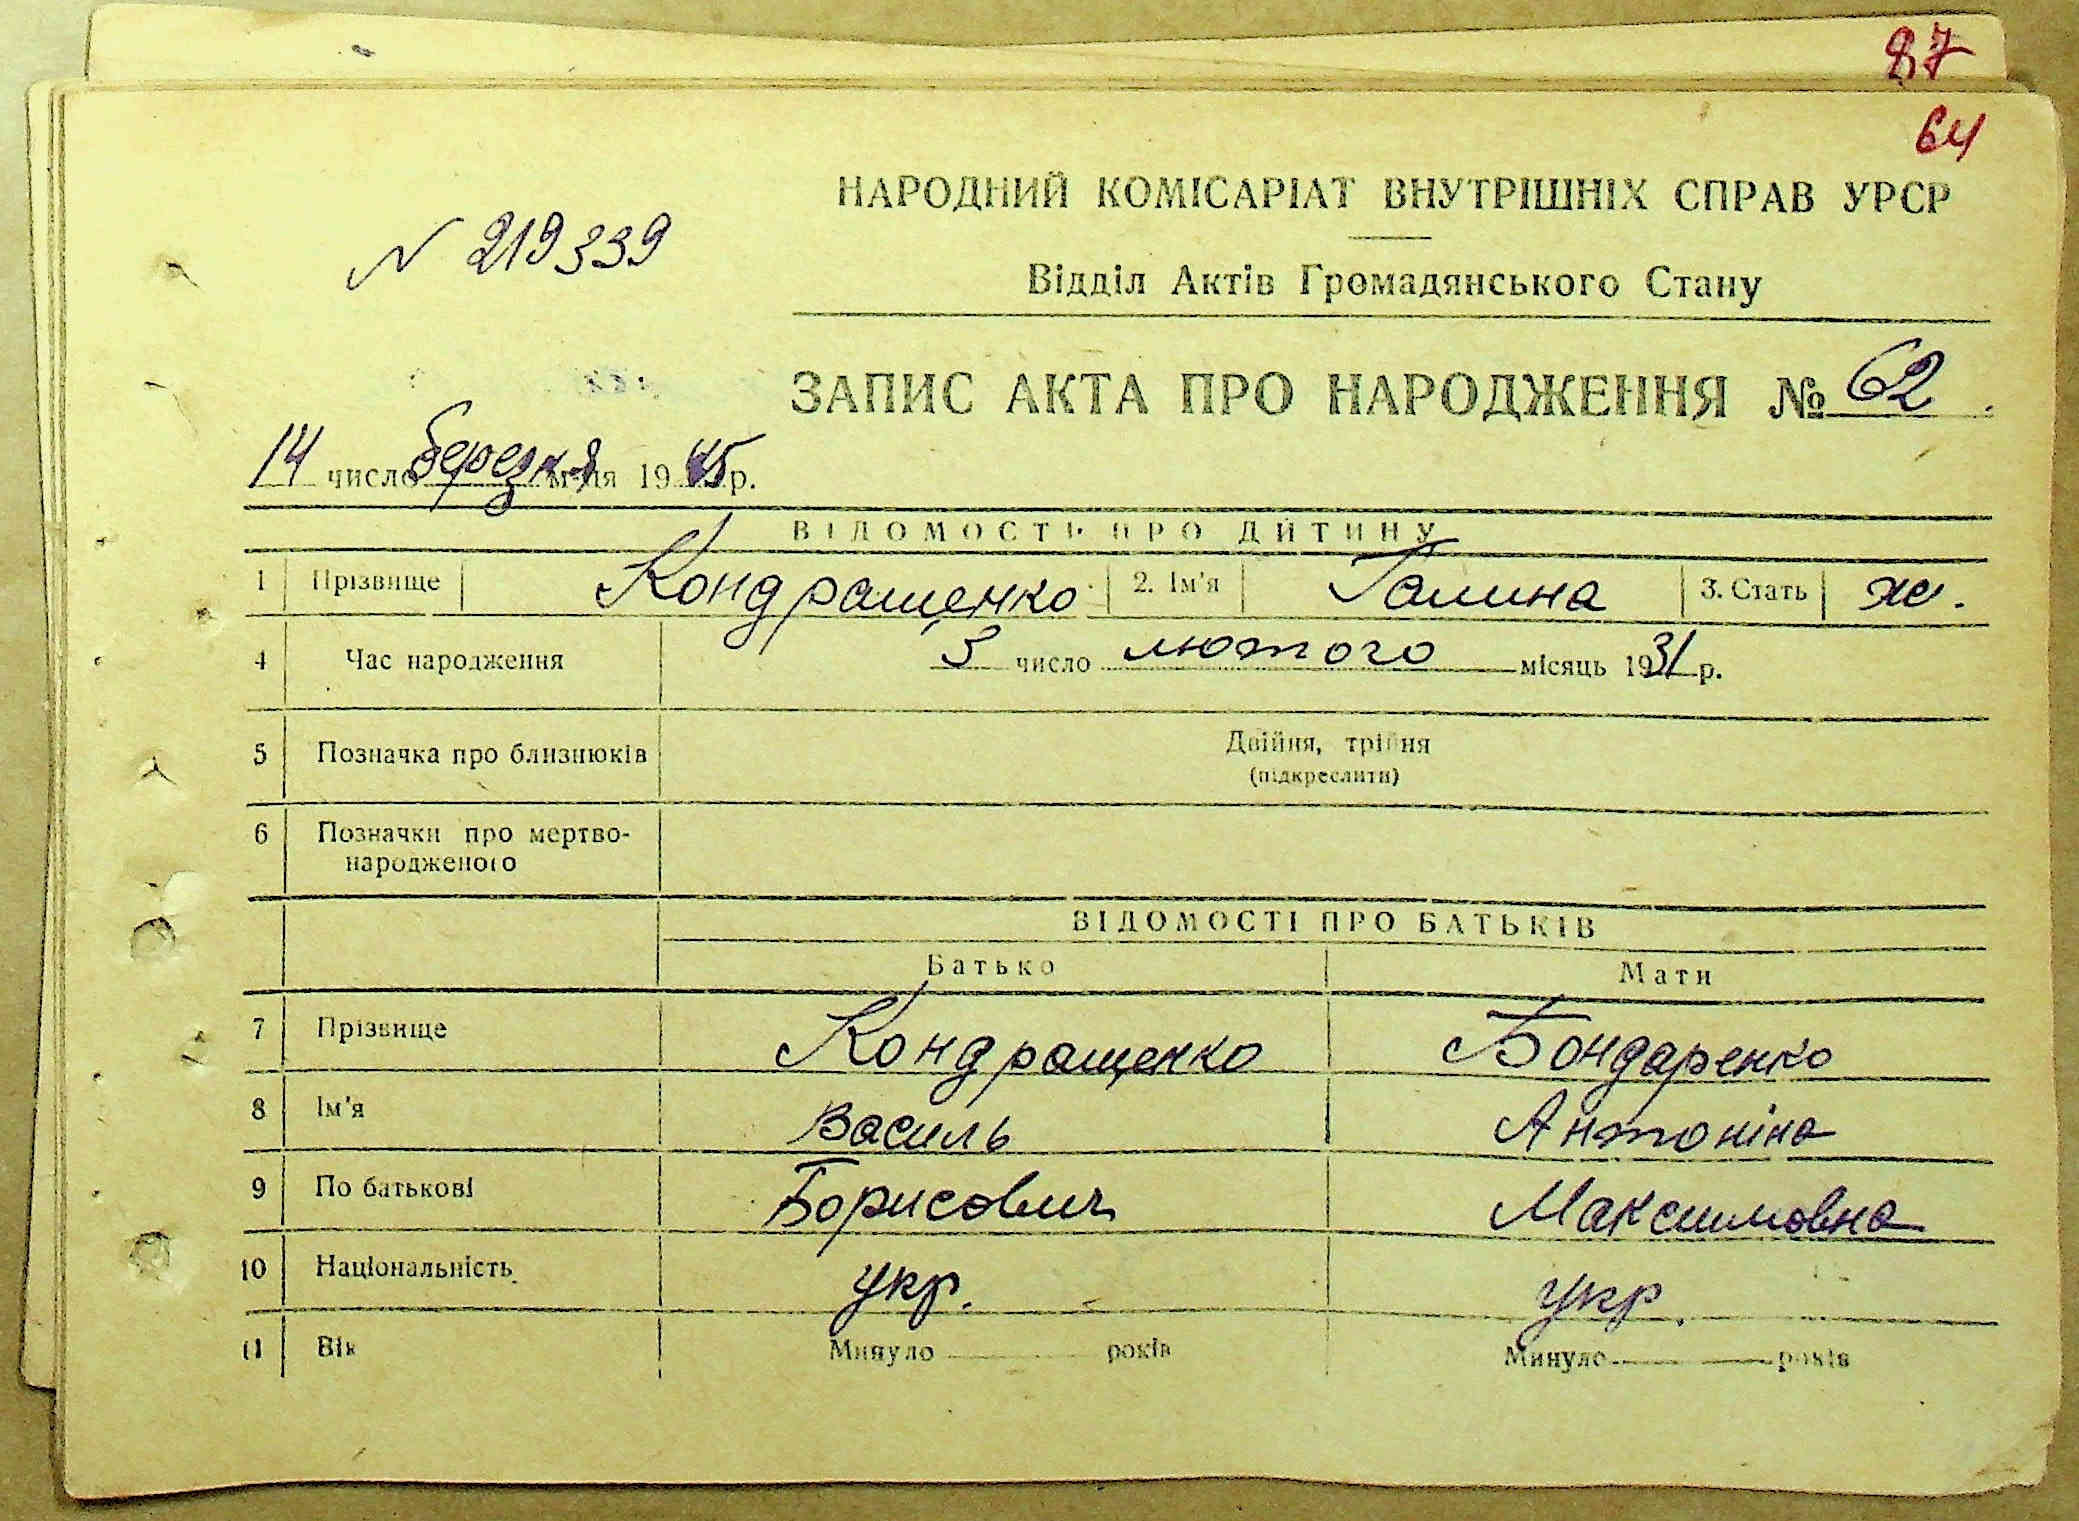 87
64
НАРОДНИЙ КОМІСАРІАТ ВНУТРІШНІХ СПРАВ УРСР
N 219339
Відділ Актів Громадянського Стану
ЗАПИС АКТА ПРО НАРОДЖЕННЯ № 62
14 число березня м-ця 1945 р.
ВІДОМОСТІ ПРО ДИТИНУ
1 Прізвище Кондращенко 2. Ім'я Галина 3. Стать ж.
4 Час народження 3 число лютого місяць 1931 р.
5 Позначка про близнюків Двійня, трійня
(підкреслити)
6 Позначки про мертво-
народженого
ВІДОМОСТІ ПРО БАТЬКІВ
Батько Мати
7 Прізвище Кондращенко Бондаренко
8 Ім'я Василь Антоніна
9 По батькові Борисович Максимовна
10 Національність укр. укр.
11 Вік Минуло років Минуло років